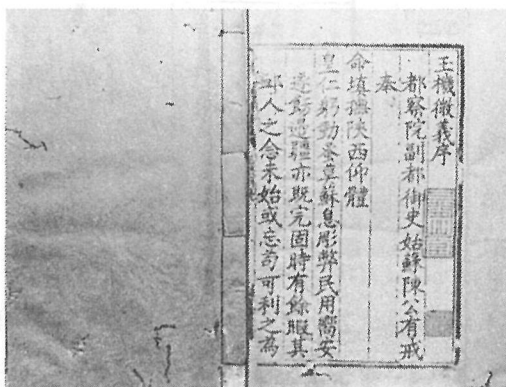 玉機微義序
都察院副都御史姑蘇陳公有戒
奉
命填撫陝西仰體
皇仁躬勤蚤莫蘇息彫弊民用嚮安
邊飭邉疆亦既完固時有餘暇其
人之念未始或忘苟可利之為